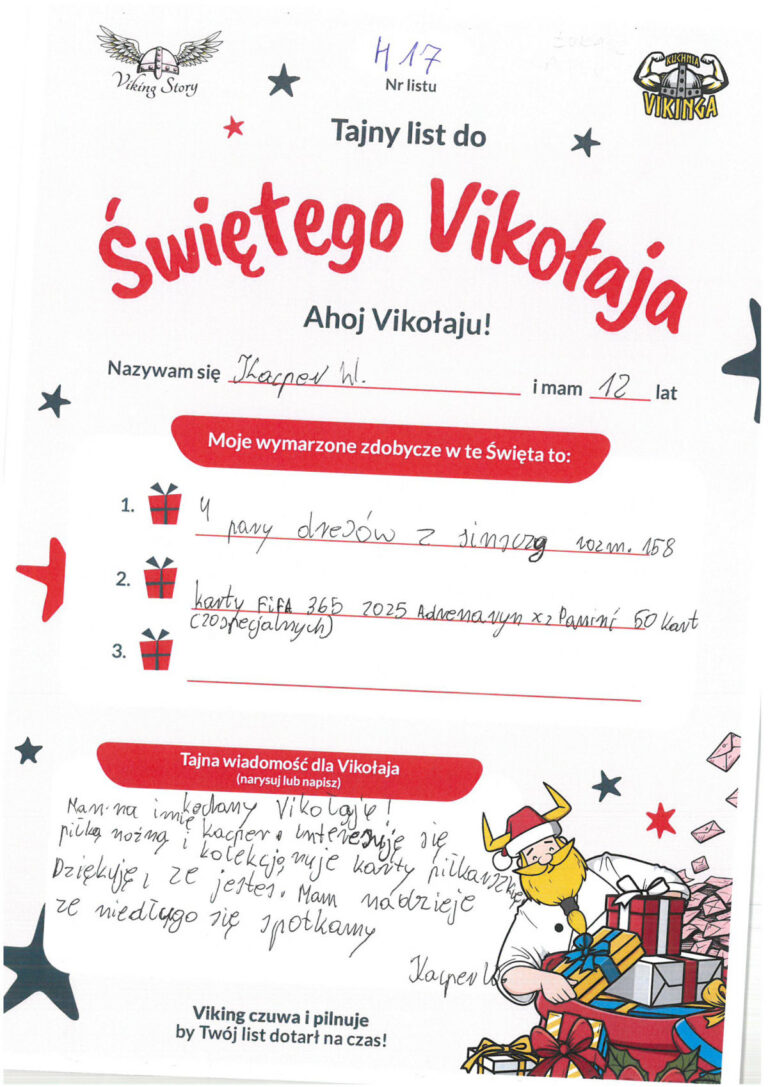 Viking Story
H 17
Nr listu
KUCHNIA
VIKINGA
Tajny list do
Świętego Vikołaja
Ahoj Vikołaju!
Nazywam się Kacper W. i mam 12 lat
Moje wymarzone zdobycze w te Święta to:
1. 4 pary dresów z rozm. 158
2. karty FiFA 365 2025 Adrenalyn x2 Panini 50 kart
(20 specjalnych)
3.
Tajna wiadomość dla Vikołaja
(narysuj lub napisz)
kochany Vikołaju!
Mam na imię Kacper. interesuję się
piłką nożną i kolekcjonuje karty piłkarskie
Dziękuję, ze jesteś. Mam nadzieje
ze niedługo się spotkamy
Kacper W.
Viking czuwa i pilnuje
by Twój list dotarł na czas!